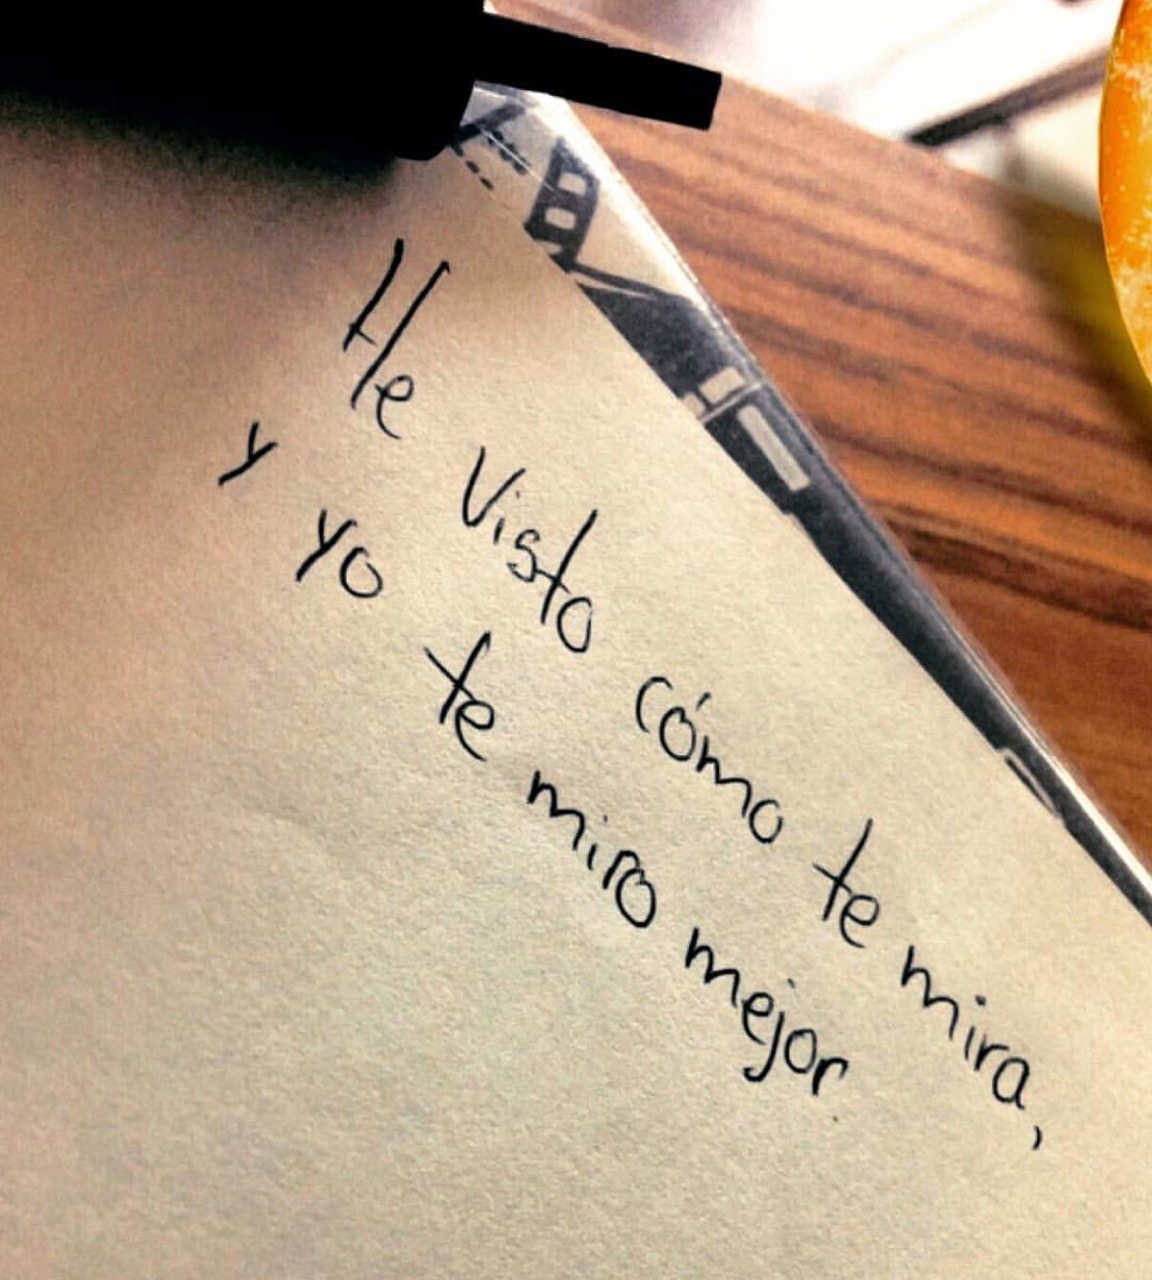 He visto cómo te mira,
y yo te miro mejor